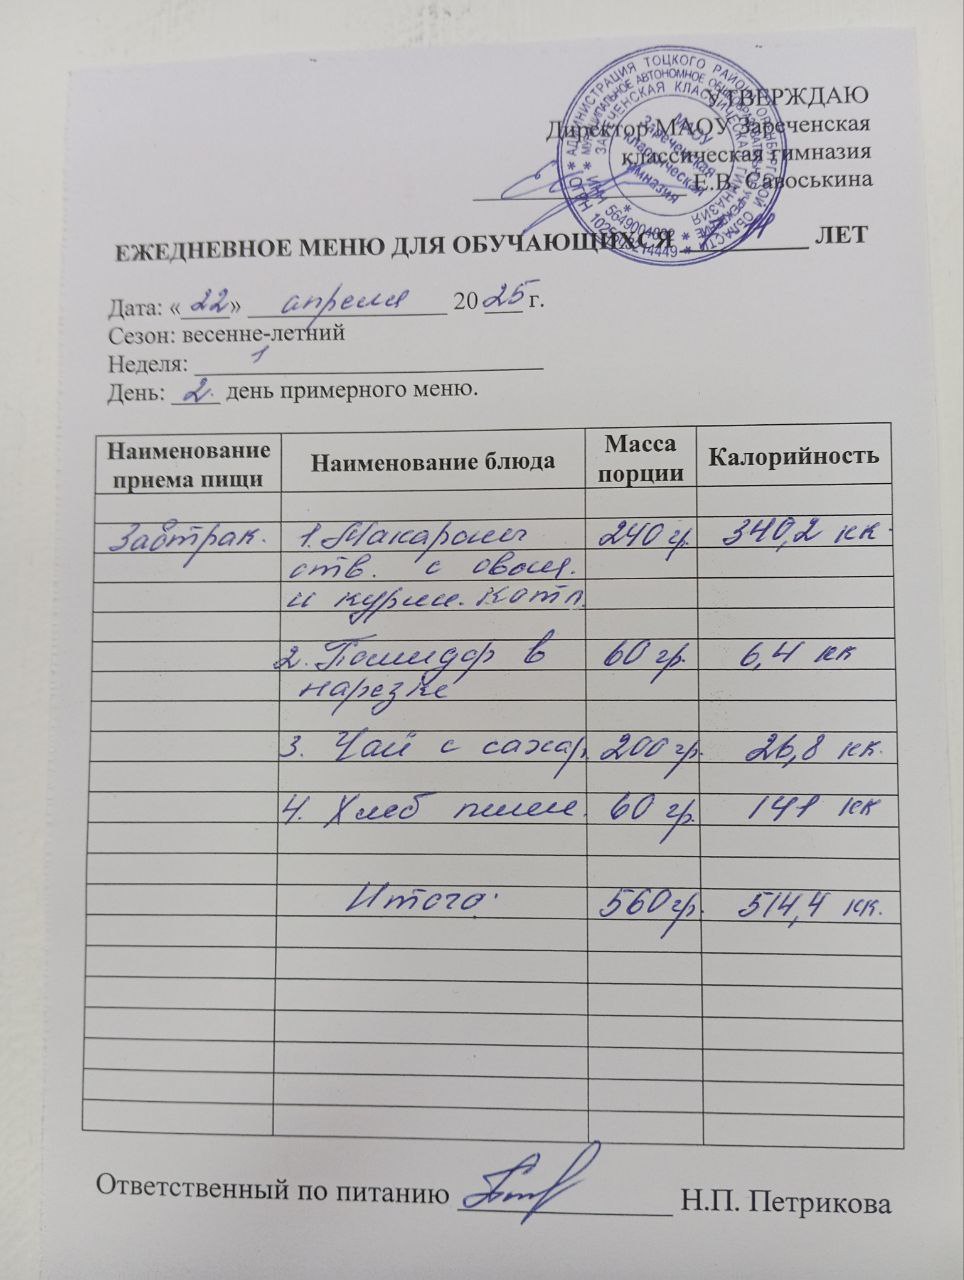 УТВЕРЖДАЮ
Директор МАОУ Зареченская
классическая гимназия
Е.В. Савоськина
ЕЖЕДНЕВНОЕ МЕНЮ ДЛЯ ОБУЧАЮЩИХСЯ ЛЕТ
Дата: «22» апреля 2025 г.
Сезон: весенне-летний
Неделя: 1
День: 2. день примерного меню.
Наименование приема пищи Наименование блюда Масса порции Калорийность
Завтрак. 1. Макароны 240 г. 340,2 кк.
отв. с овощ.
и курин. котл.
2. Помидор в 60 гр. 6,4 кк
нарезке
3. Чай с сахар. 200 гр. 26,8 кк.
4. Хлеб пшен. 60 гр. 141 кк
Итого: 560 гр. 514,4 кк.
Ответственный по питанию Н.П. Петрикова
МАОУ
Зареченская
классическая
гимназия